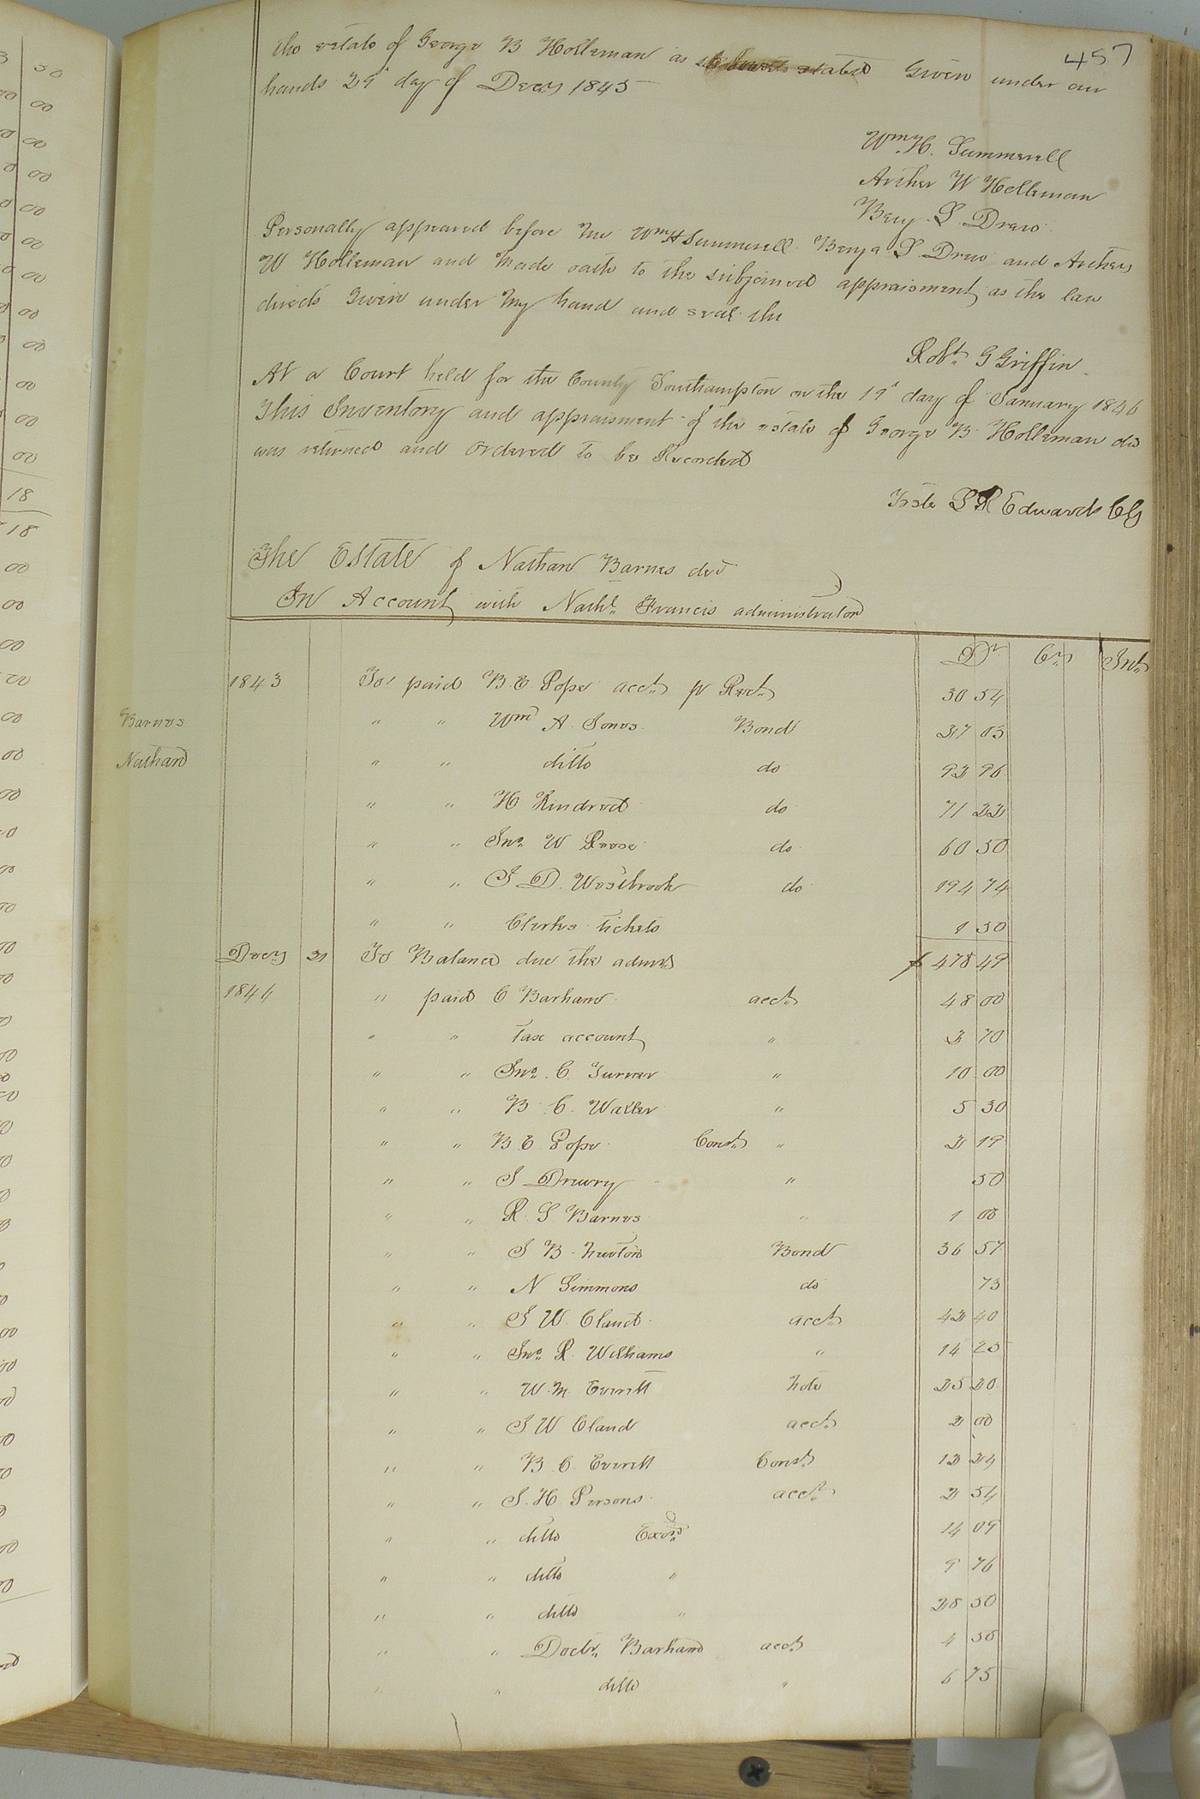 457
the estate of George B Holleman as stated Given under our
hands 29th day of Decr 1845
Wm H. Summerell
Archer W Holleman
Benj. S Drew
Personally appeared before me Wm H Summerell Benja S Drew and Archer
W Holleman and made oath to the subjoined appraisment as the law
directs Given under my hand and seal the
Robt G Griffin
At a Court held for the County Southampton on the 19th day of January 1846
This Inventory and appraisment of the estate of George B. Holleman decd
was returned and ordered to be Recorded
Teste L R Edwards Clk
The Estate of Nathan Barnes decd
In Account with Nathl Francis administrator
Dr Cr Int
1843 To paid B E Pope acct pr Rect 30 54
Barnes " " Wm A Jones Bond 27 03
Nathan " " ditto do 92 96
" " H Kindred do 71 22
" " Jno W Reese do 60 50
" " J D. Westbrook do 194 74
" " Clerks tickets 1 50
Decr 21 To Balance due the admr $ 478 49
1844 " paid C Barham acct 48 00
" " Tax account " 2 70
" " Jno C Turner " 10 00
" " B C. Waller " 5 30
" " B E Pope Const " 2 19
" " J Drewry " 50
" " R. S Barnes " 1 00
" " J B. Newton Bond 36 57
" " N Simmons do 73
" " J W. Claud acct 42 40
" " Jno R Williams " 14 25
" " W. M Everett note 25 20
" " J W Claud acct 2 00
" " B. C. Everett Const 12 24
" " J. H Persons acct 2 54
" " ditto Exor 14 09
" " ditto " 9 76
" " ditto " 28 50
" " Doctr Barham acct 4 50
" " ditto " 6 75